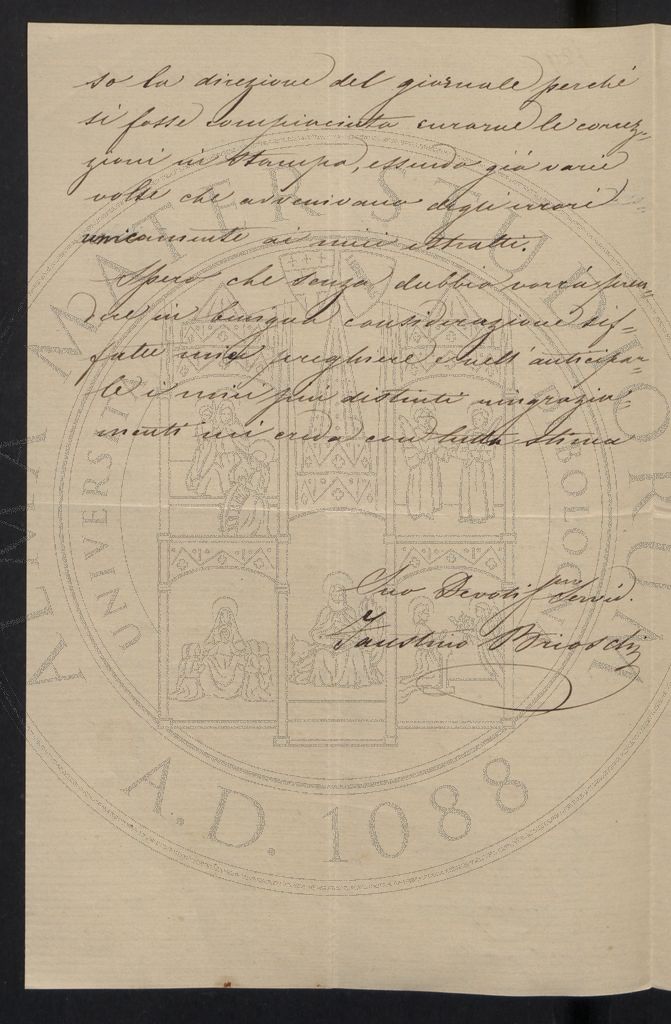 so la direzione del giornale perché
si fosse compiaciuta curarne le correz-
zioni in stampa, essendo già varie
volte che avvenivano degli errori
unicamente ai miei estratti.
Spero che senza dubbio vorrà pren-
dere in benigna considerazione sif-
fatte mie preghiere e nell'anticipar-
le i miei più distinti ringrazia-
menti mi creda con tutta stima
Suo Devotiss.mo Servid.
Faustino Brioschi
ALMA MATER STUDIORUM
UNIVERSITÀ BOLOGNA
A.D. 1088